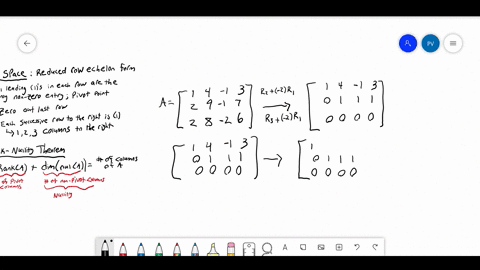 Space : Reduced row echelon form
leading (1)s in each row are the
non-zero entry; Pivot point
Zero out last row
Each successive row to the right is (1)
↳ 1, 2, 3 columns to the right
K-Nullity Theorem
Rank(A) + dim(nul(A)) = # of columns of A
# of Pivot columns
# of non-Pivot columns
Nullity
A = [ 1 4 -1 3
2 9 -1 7
2 8 -2 6 ]
R₂+(-2)R₁
→
R₃+(-2)R₁
[ 1 4 -1 3
0 1 1 1
0 0 0 0 ]
[ 1 4 -1 3
0 1 1 1
0 0 0 0 ] → [ 1
0 1 1 1
0 0 0 0
PV